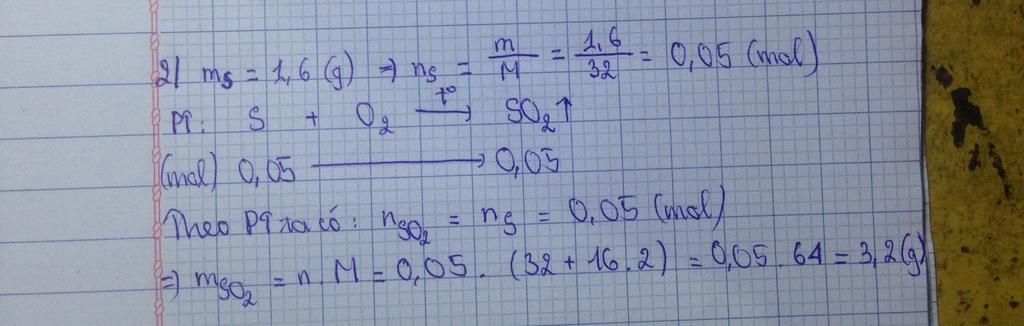 2) mS = 1,6 (g) ⇒ nS = m/M = 1,6/32 = 0,05 (mol)
PT: S + O₂ —t°→ SO₂↑
(mol) 0,05 ⟶ 0,05
Theo PT ta có: nSO₂ = nS = 0,05 (mol)
⇒ mSO₂ = n.M = 0,05 . (32 + 16.2) = 0,05 . 64 = 3,2 (g)